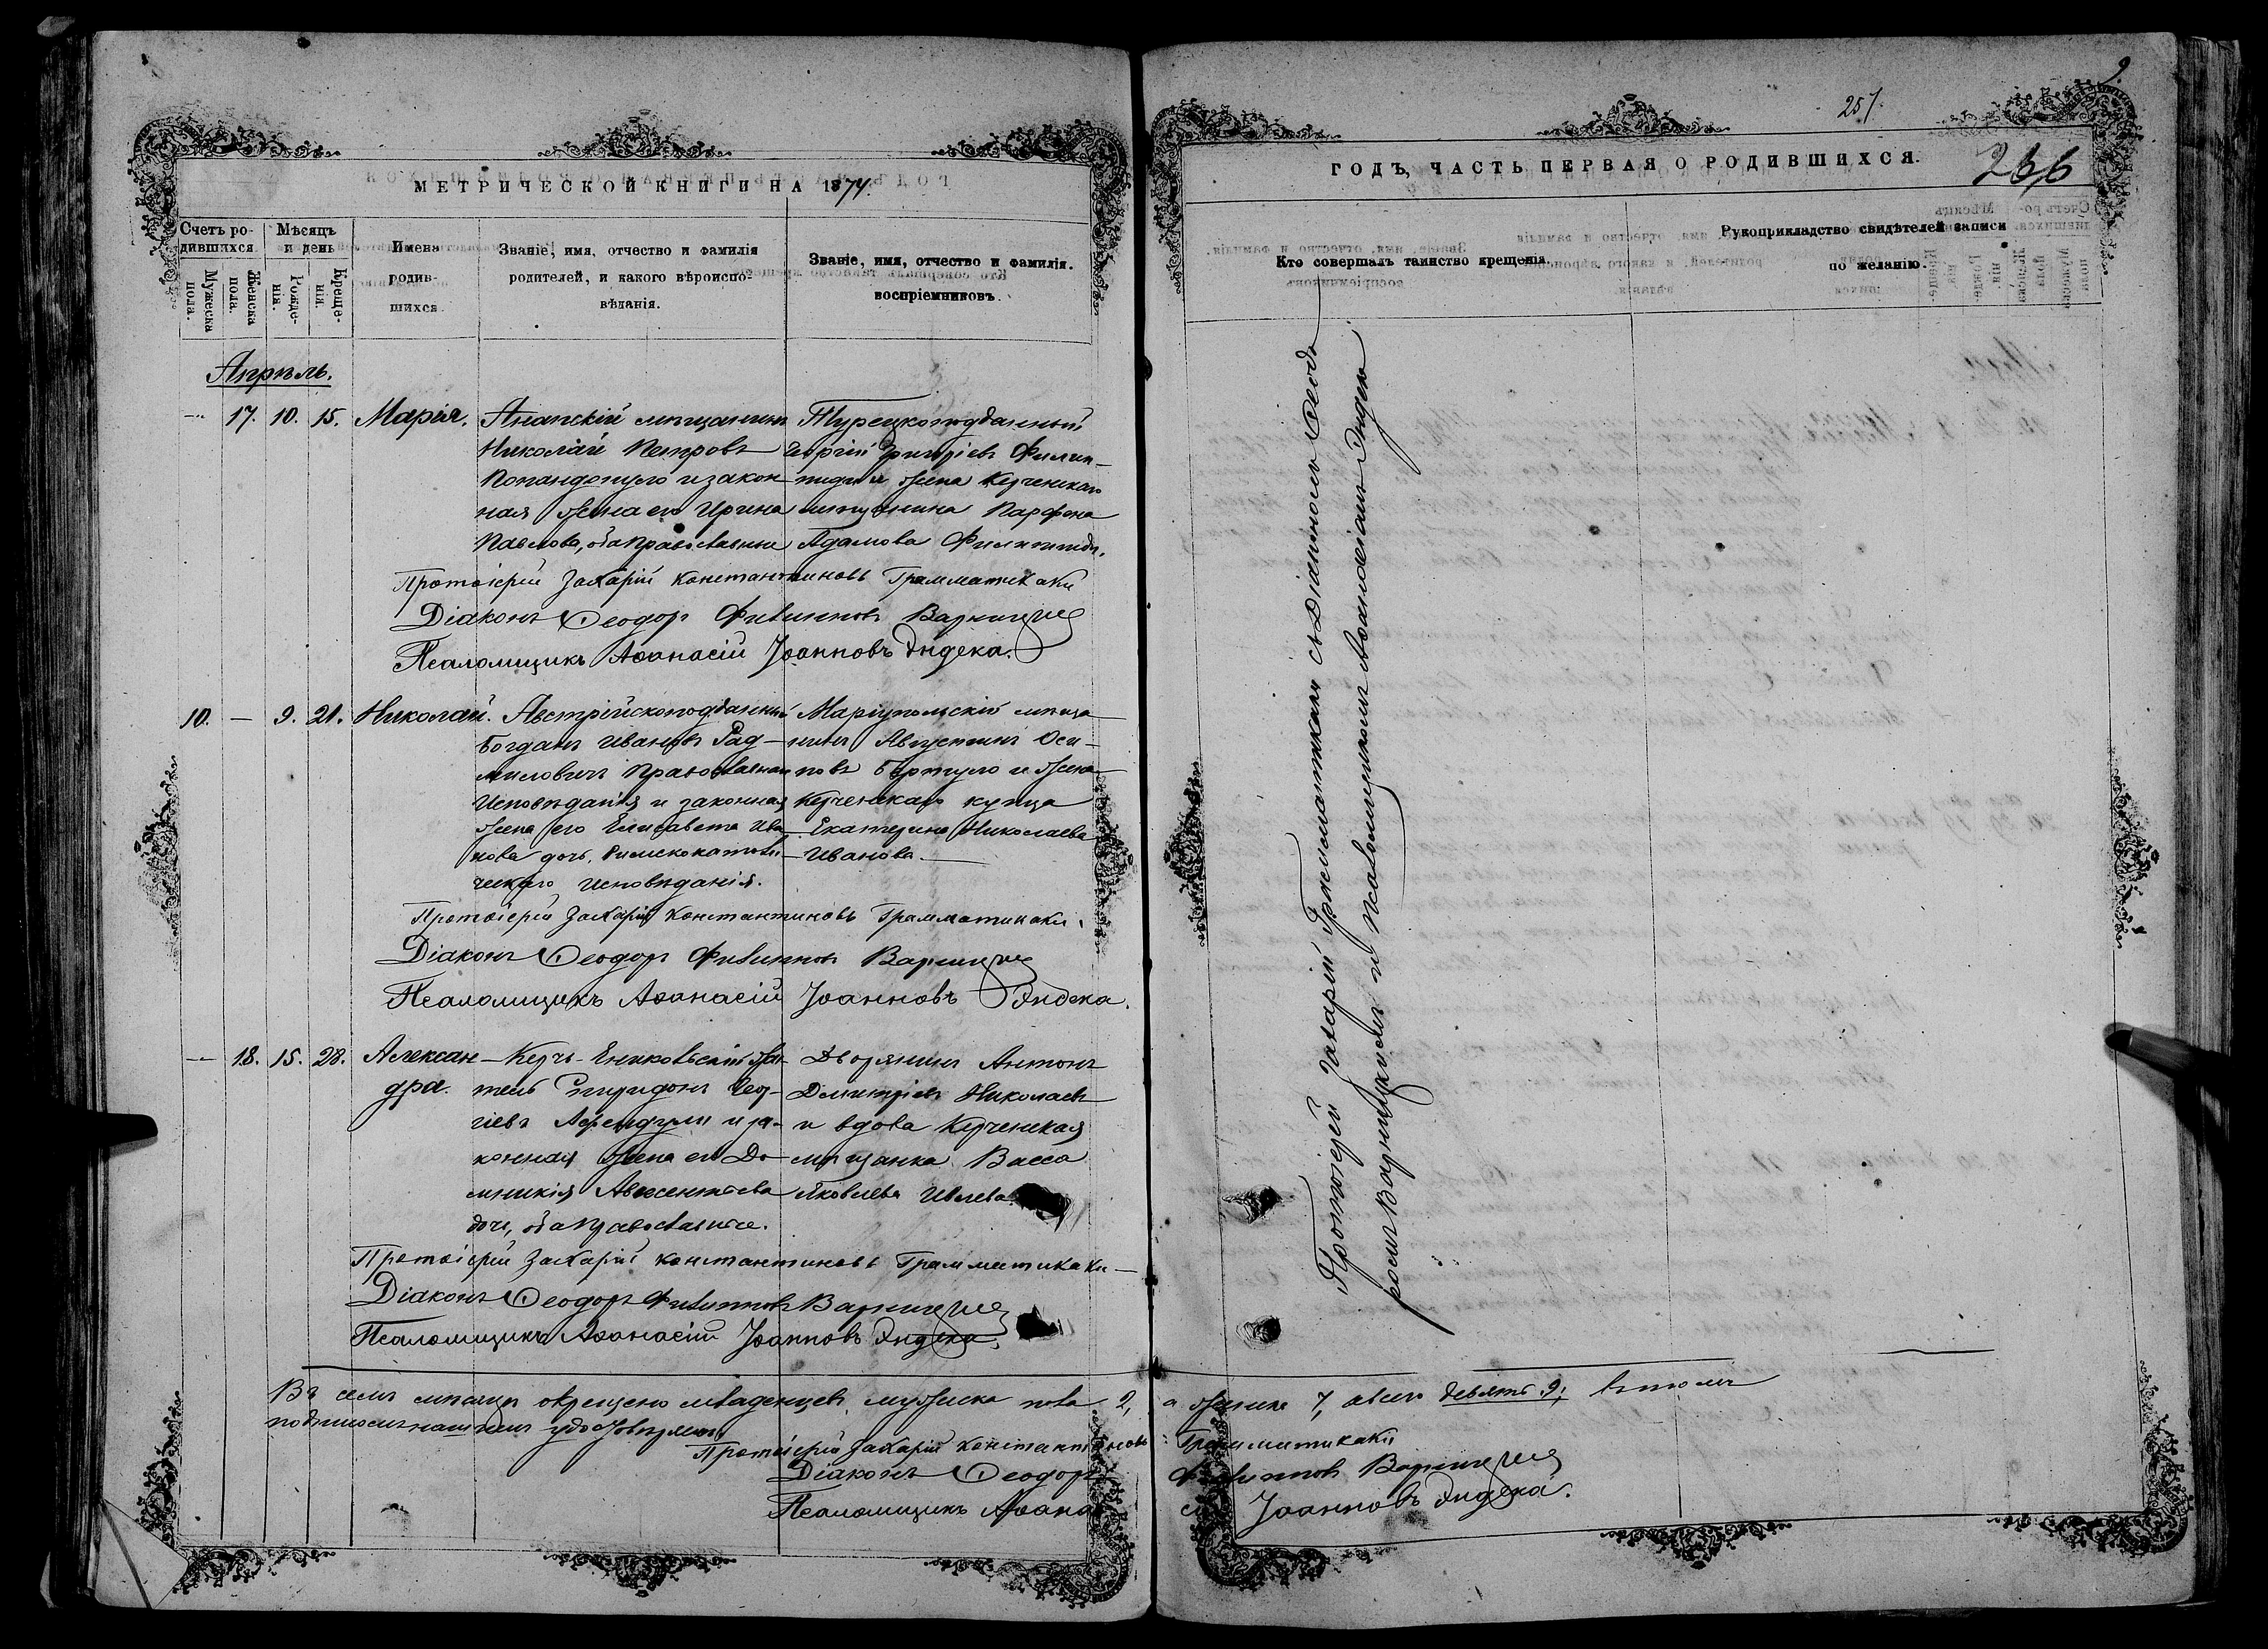 МЕТРИЧЕСКОЙ КНИГИ НА 1874.
Счетъ родившихся.
Мужеска пола.
Женска пола.
Мѣсяцъ и день
Рожденія.
Крещенія.
Имена родившихся.
Званіе, имя, отчество и фамилія
родителей, и какого вѣроиспо-
вѣданія.
Званіе, имя, отчество и фамилія
воспріемниковъ.
Апрѣль.
— 17. 10. 15. Марія.
Анапскій мѣщанинъ
Николай Петровъ
Попандопуло и закон-
ная жена его Ирина
Павлова, оба православные
Турецкоподданный
Георгій Григоріевъ Филип-
пиди и жена Керченскаго
мѣщанина Парфена
Адамова Филиппиди.
Протоіерей Захарій Константиновъ Грамматикаки
Діаконъ Ѳеодоръ Филипповъ
Псаломщикъ Аѳанасій Іоанновъ Эндека.
10. — 9. 21. Николай.
Австрійскоподданный
Богданъ Ивановъ Рад-
миловичъ православнаго
исповѣданія и законная
жена его Елисавета Ива-
нова дочь, римскокатоли-
ческаго исповѣданія.
Маріупольскій мѣща-
нинъ Августинъ Оси-
повъ и жена
Керченскаго купца
Екатерина Николаева
Иванова.
Протоіерей Захарій Константиновъ Грамматикаки.
Діаконъ Ѳеодоръ Филипповъ
Псаломщикъ Аѳанасій Іоанновъ Эндека.
— 18. 15. 28. Алексан-
дра.
Керчь-Ениковьскій жи-
тель Спиридонъ Геор-
гіевъ Афендули и за-
конная жена его До-
мникія Авксентьева
дочь, оба православные.
Дворянинъ Антонъ
Димитріевъ Николаевъ
и вдова Керченская
мѣщанка Васса
Яковлева Ивлева
Протоіерей Захарій Константиновъ Грамматикаки
Діаконъ Ѳеодоръ Филипповъ
Псаломщикъ Аѳанасій Іоанновъ Эндека.
Въ семъ мѣсяцѣ окрещено младенцевъ мужеска пола 2,
подписомъ нашимъ удостовѣряемъ.
Протоіерей Захарій Константиновъ
Діаконъ Ѳеодоръ
Псаломщикъ Аѳана
9.
257.
266
ГОДЪ, ЧАСТЬ ПЕРВАЯ О РОДИВШИХСЯ.
Кто совершалъ таинство крещенія.
Рукоприкладство свидѣтелей записи
по желанію.
Протоіерей Захарій Грамматикаки съ Діакономъ Ѳеодо-
ромъ и псаломщикомъ Аѳанасіемъ Эндекою
а женска 7, а всего девять 9; въ томъ
Грамматикаки
Филипповъ
сій Іоанновъ Эндека.